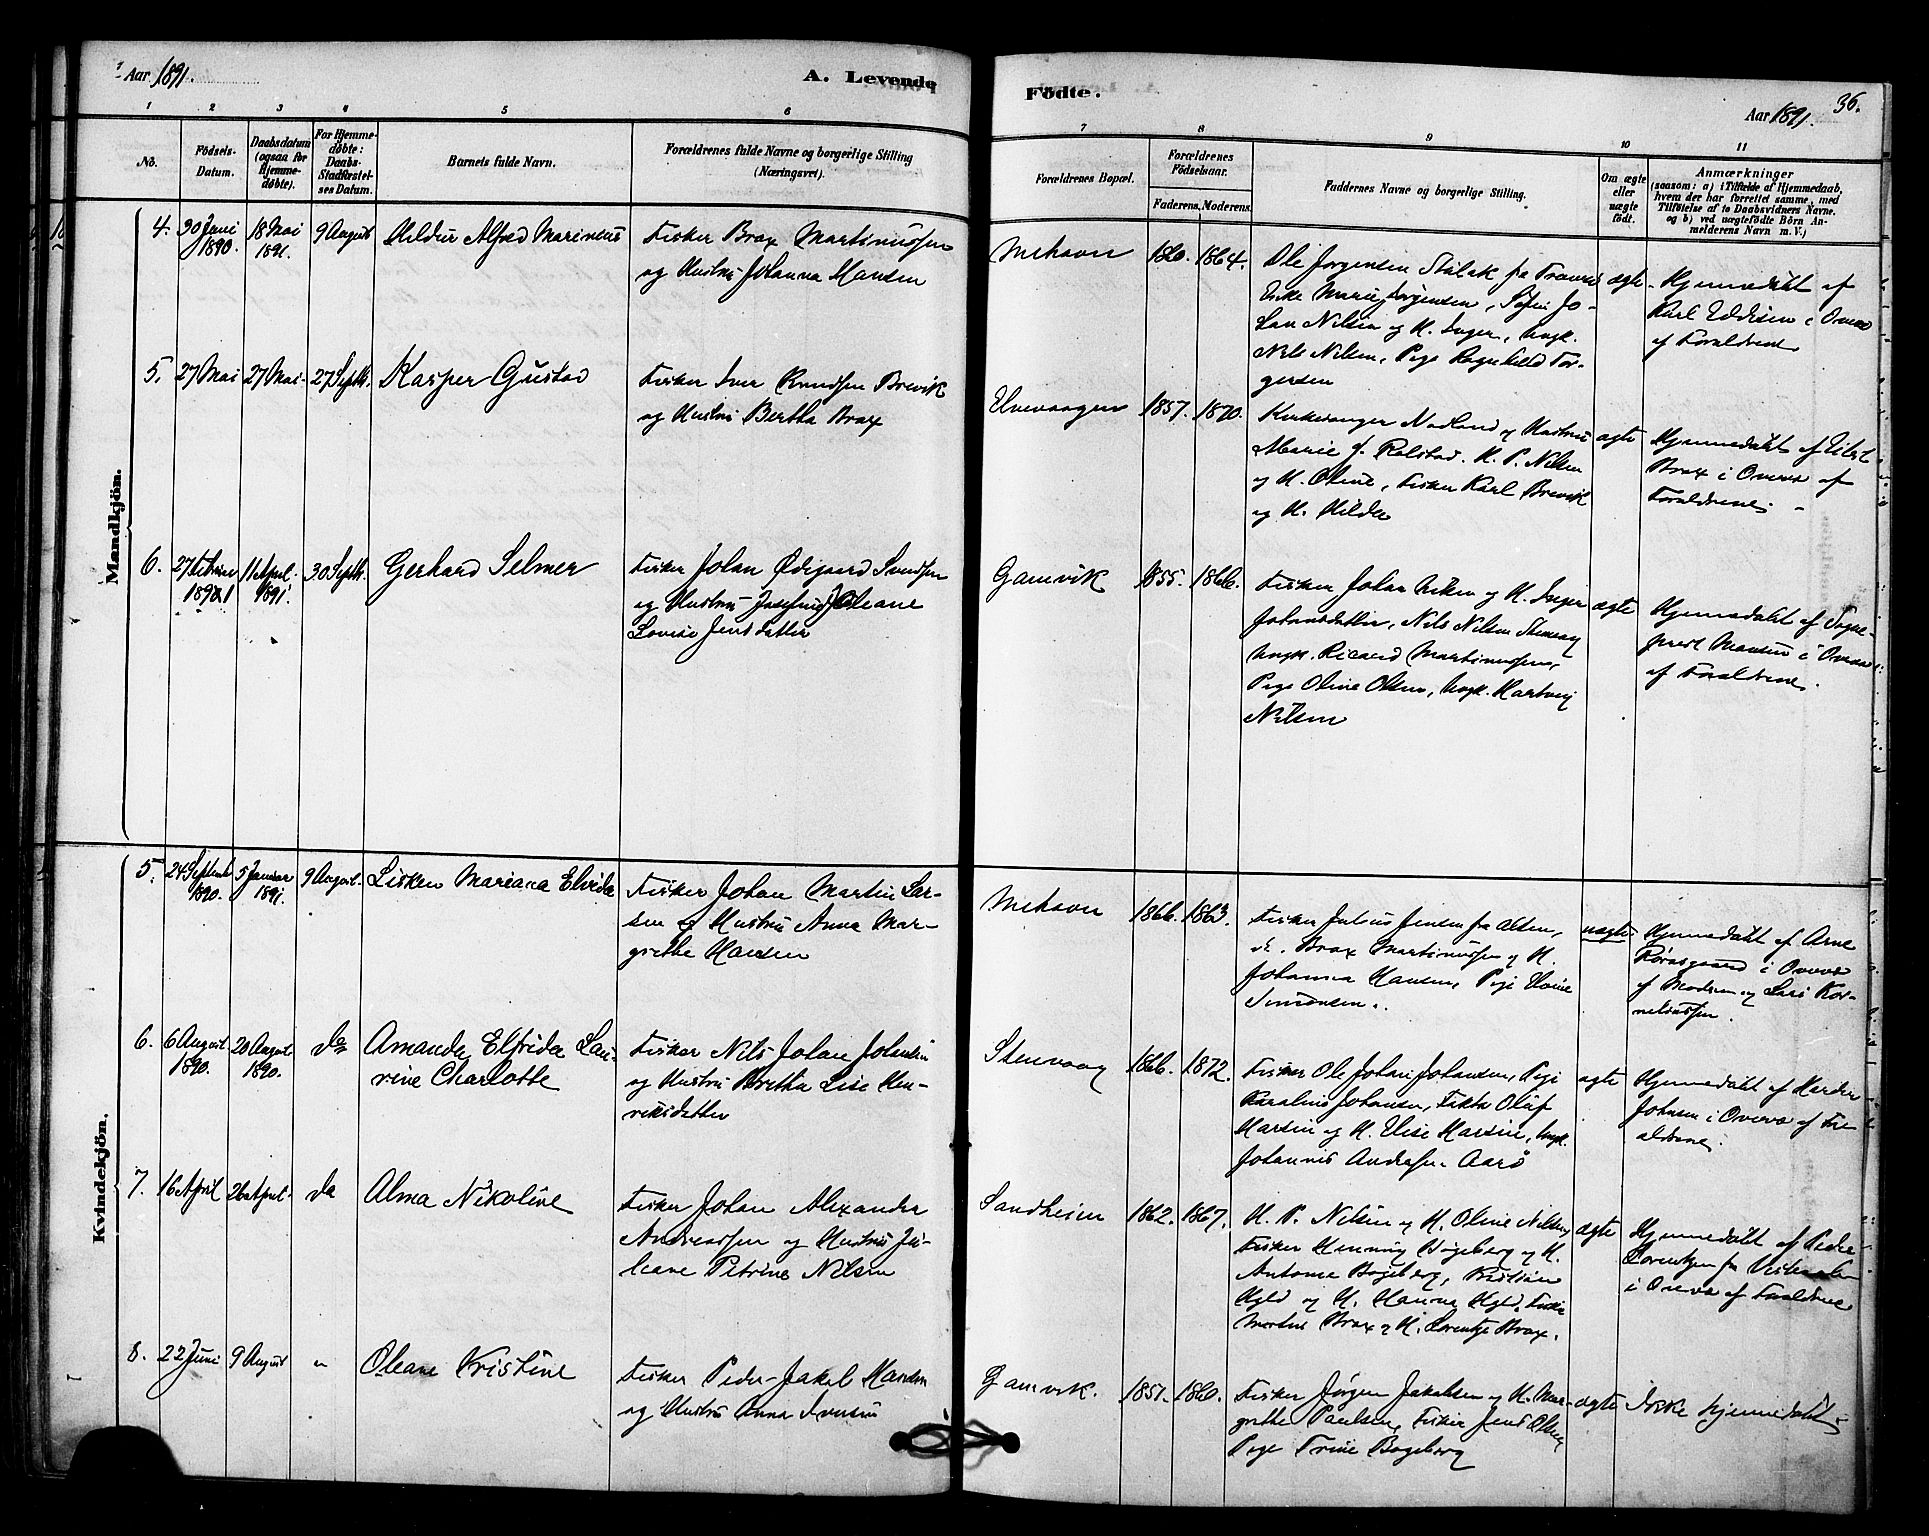 Aar 1891.
A. Levende
Födte.
Aar 1891.
36.
1
2
3
4
5
6
7
8
9
10
11
No.
Födsels-
Datum.
Daabsdatum
(ogsaa for
Hjemme-
döbte).
For Hjemme-
döbte:
Daabs-
Stadfæstel-
ses Datum.
Barnets fulde Navn.
Forældrenes fulde Navne og borgerlige Stilling
(Næringsvei).
Forældrenes Bopæl.
Forældrenes
Födselsaar.
Faderens. Moderens.
Faddernes Navne og borgerlige Stilling.
Om ægte
eller
uægte
födt.
Anmærkninger
(saasom: a) i Tilfælde af Hjemmedaab,
hvem der har forrettet samme, med
Tilföielse af to Daabsvidners Navne.
og b) ved uægtefödte Börn An-
melderens Navn m. V.)
Mandkjön.
4.
30 Juni
1890.
18 Mai
1891.
9 August
Hildur Alfred Marineus
Fisker Brox Martinussen
og Hustru Johanna Hansen
Mehavn
1860. 1864.
Ole Jørgensen fra
Enke Marie Jørgensen,
Nilsen og H. Inger, Ungk.
Nils Nilsen, Pige Ragnhild Tor-
gersen
ægte
Hjemmedøbt af
Karl Eddisen i Overv
af Forældrene
5.
27 Mai
27 Mai
27 Septb.
Kasper Gustav
Fisker Iver Knudsen Brevik
og Hustru Bertha Brox
1857. 1870.
Kirkesanger Nedland og Hustru
Marie f. Rolstad. H. P. Nilsen
og H. Oline, Fisker Karl Brevik
og H. Hilda
ægte
Hjemmedøbt af
Brox i Overv af
Forældrene
6.
27 Februar
1891
11 April
1891.
30 Septb.
Gerhard Selmer
Fisker Johan Ødegaard Svendsen
og Hustru Josefine Oleane
Lovise Jensdatter
Gamvik
1855. 1866.
Fisker Johan og H. Inger
Johansdatter, Nils Nilsen
Ungk. Ricard Martinussen,
Pige Oline Olsen, Ungk. Hartvig
Nilsen
ægte
Hjemmedøbt af Sogne-
prest Hansen i Overv
af Forældrene.
Kvindekjön.
5.
24 Septemb
1890.
5 Januar
1891.
9 August.
Lisken Mariana Elvida
Fisker Johan Martin Lar-
sen og Hustru Anna Mar-
grethe Hansen
Mehavn
1866. 1863.
Fisker Julius Jensen fra Alten,
Brox Martinussen og H.
Johanna Hansen, Pige
Simonsen.
uægte
Hjemmedøbt af Arne
Rørasgaard i Overv
af Moderen og Lars Kor-
neliussen.
6.
6 August
1890.
20 August
1890.
do
Amanda Elfrida Lau-
rine Charlotte
Fisker Nils Johan Johansen
og Hustru Bretha Lise Hen-
riksdatter
Stenvaag
1866. 1872.
Fisker Ole Johan Johansen, Pige
Karoline Johansen, Oluf
Hansen og H. Elise Hansen, Ungk.
Johannes Andresen Aarø
ægte
Hjemmedøbt af
Johnsen i Overv af For
ældrene.
7.
16 April
26 April
do
Alma Nikoline
Fisker Johan Alexander
Andreassen og Hustru Ju-
leane Petrine Nilsen
Sandheim
1862. 1867.
H. P. Nilsen og H. Oline Nilsen,
Fisker Henning Bogeberg og H.
Antona Bogeberg, Kristian
og H. Hanna
Brox og H. Lorentze Brox.
ægte
Hjemmedøbt af Peder
Lorentzen fra Vesteraalen
i Overv af Forældrene
8.
22 Juni
9 August
"
Oleane Kristine
Fisker Peder Jakob Hansen
og Hustru Anna Iversen
Gamvik.
1851. 1860.
Fisker Jørgen Jakobsen og H. Mar-
grethe Paulsen, Fisker Jens Olsen,
Pige Trine Bogeberg
ægte
Ikke hjemmedøbt